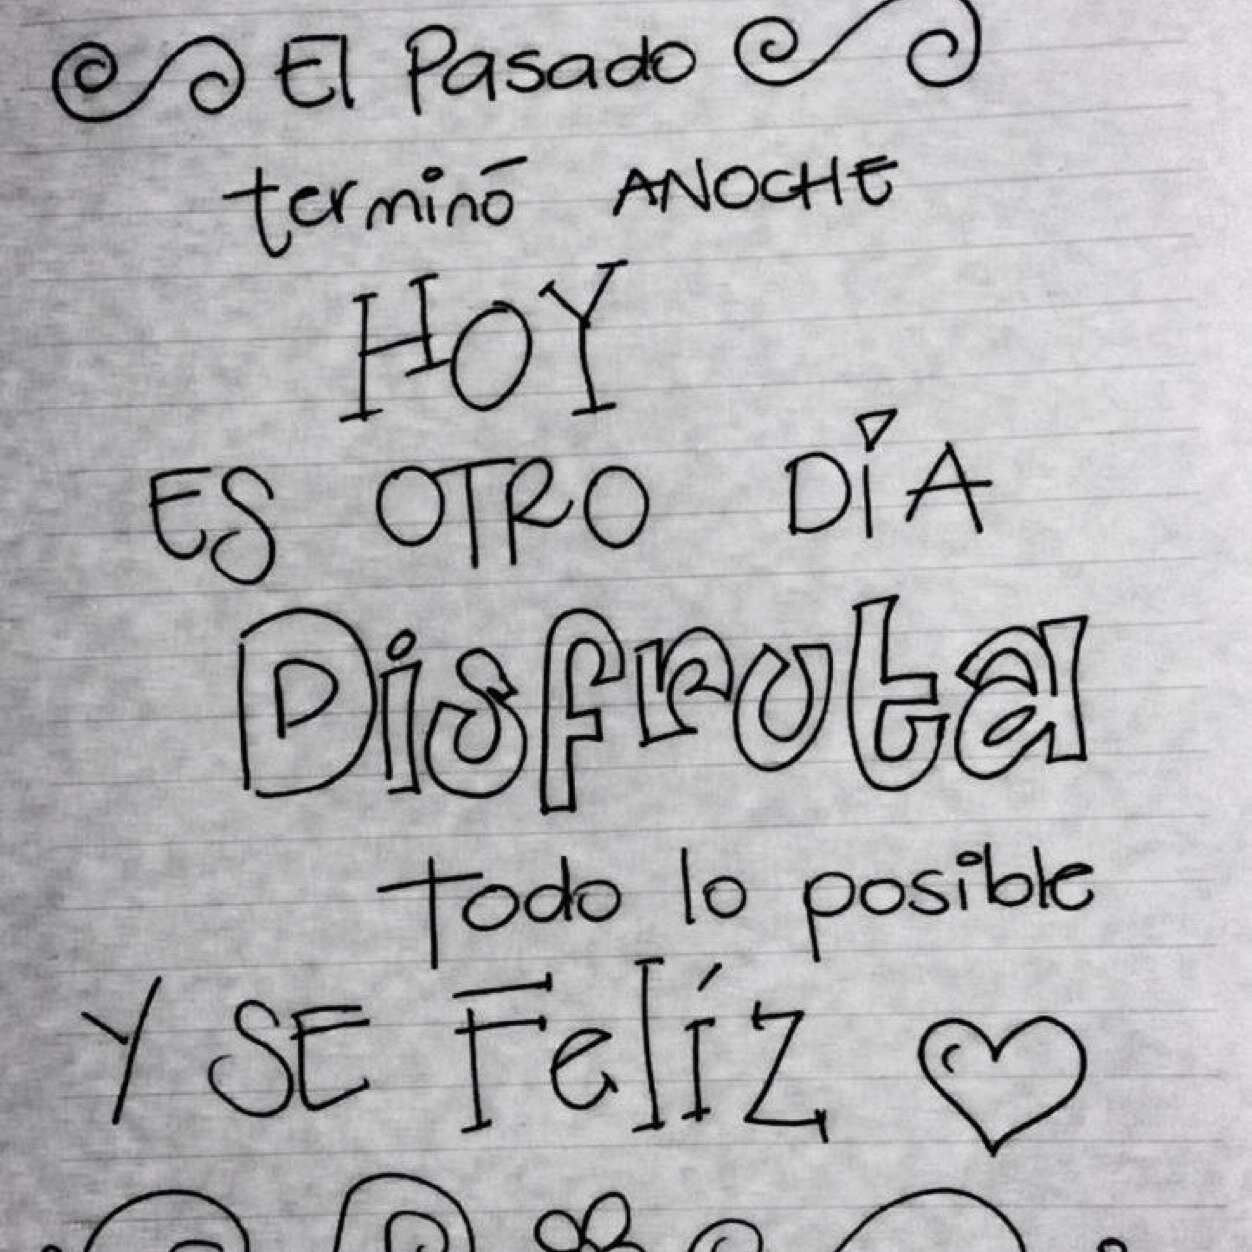 El Pasado
terminó ANOCHE
HOY
ES OTRO DÍA
Disfruta
todo lo posible
Y SE FelíZ